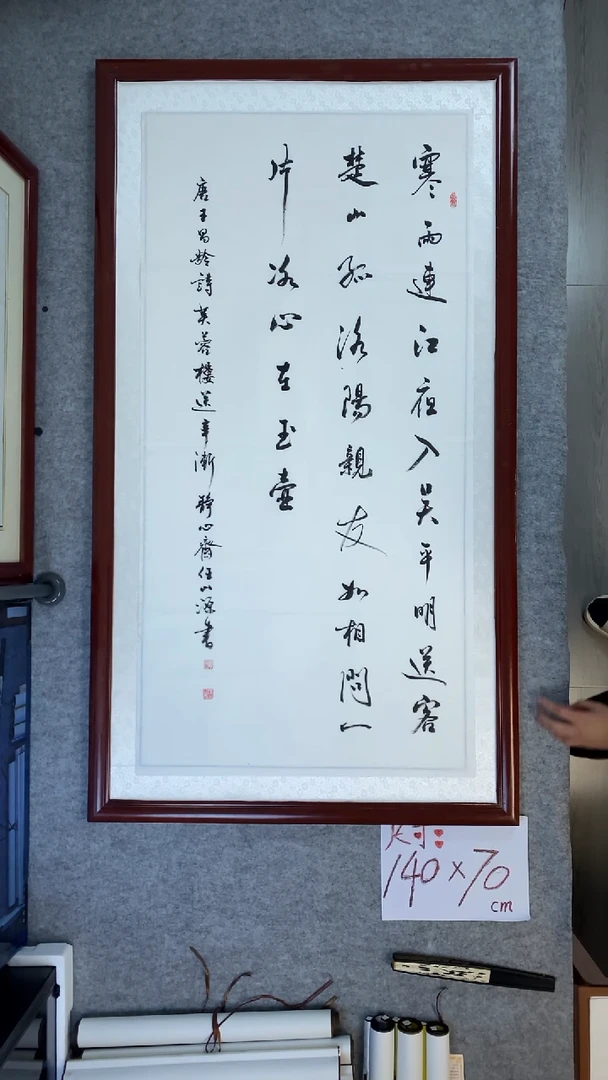 寒雨連江夜入吳平明送客
楚山孤洛陽親友如相問一
片冰心在玉壺
唐王昌齡詩芙蓉樓送辛漸 靜心齋任小源書
尺寸:
140×70
cm